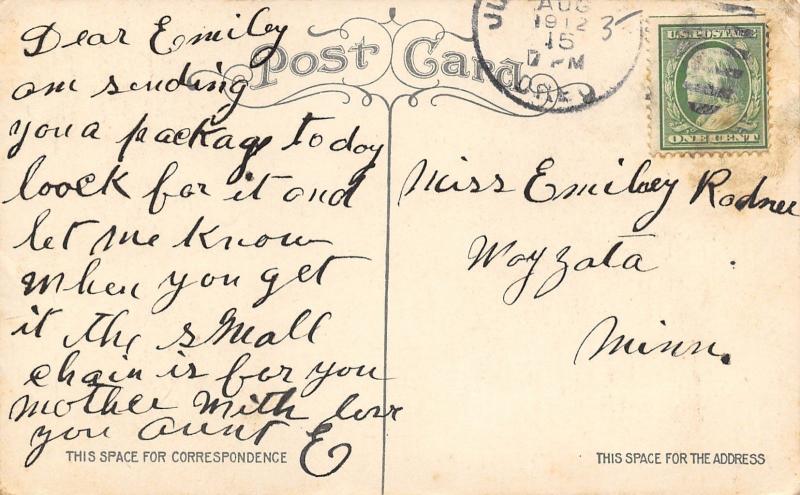 Post Card
Dear Emiley
am sending
you a package today
loock for it and
let me know
when you get
it the small
chain is for you
mother with love
you aunt E
THIS SPACE FOR CORRESPONDENCE
AUG
1912
15
7 PM
OREG
U.S. POSTAGE
ONE CENT
Miss Emiley Rodnee
Wayzata
Minn.
THIS SPACE FOR THE ADDRESS